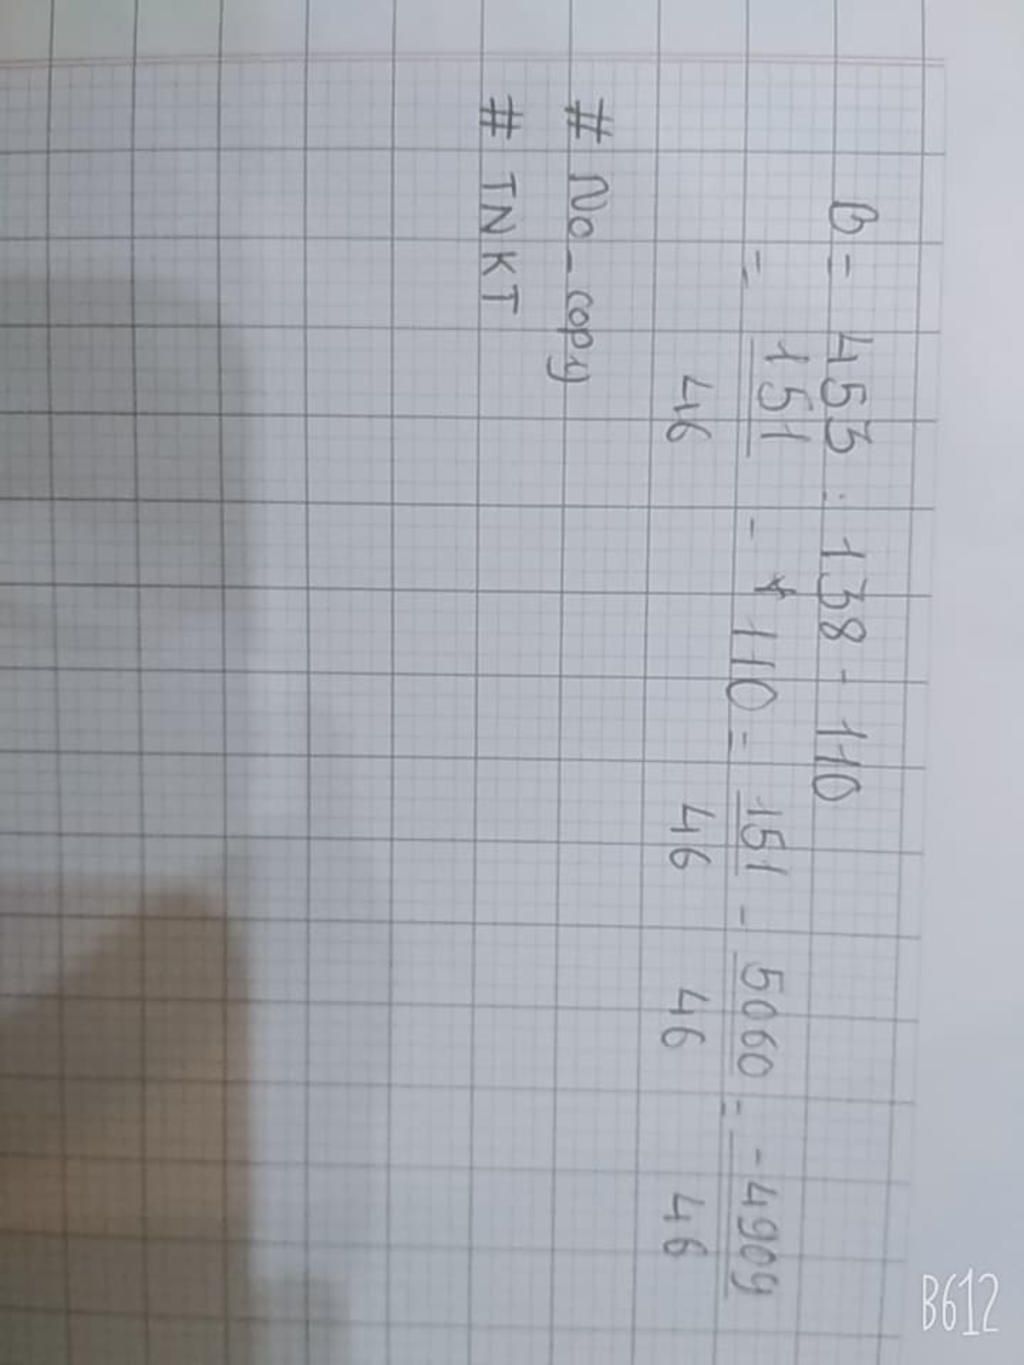 B = 453 : 138 - 110
= 151/46 - 110 = 151/46 - 5060/46 = -4909/46
# No_copy
# TNKT
B612